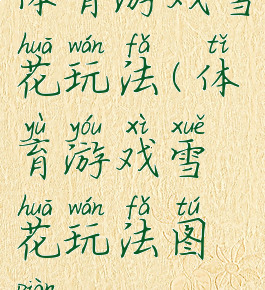 体育游戏雪
huā wán fǎ tǐ
花玩法(体
yù yóu xì xuě
育游戏雪
huā wán fǎ tú
花玩法图
piàn